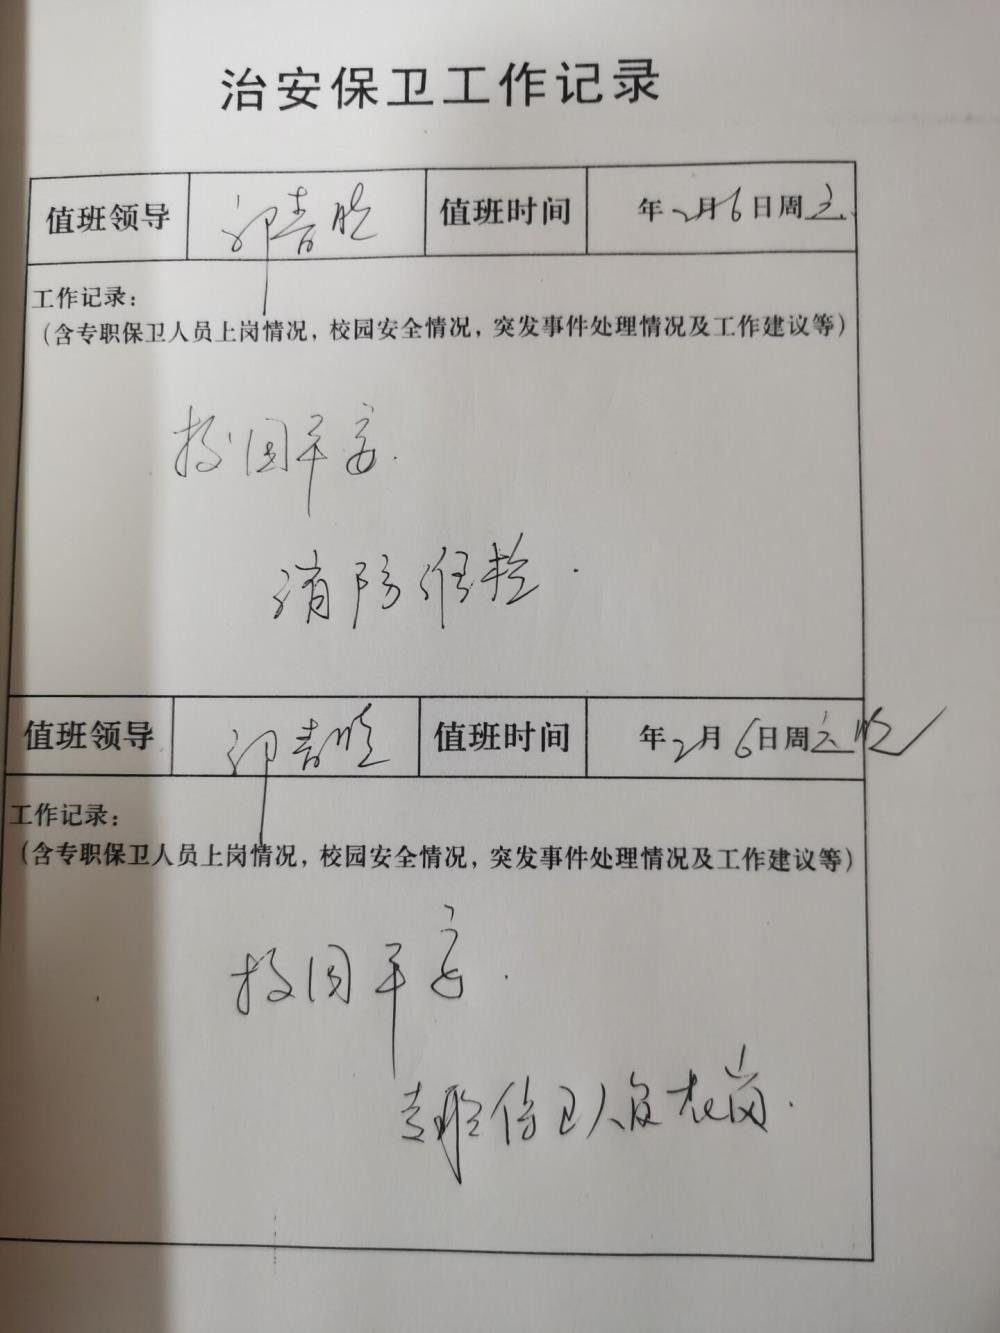 治安保卫工作记录
值班领导 值班时间 年2月6日周五
工作记录：
（含专职保卫人员上岗情况，校园安全情况，突发事件处理情况及工作建议等）
校园平安.
消防维检.
值班领导 值班时间 年2月6日周五晚
工作记录：
（含专职保卫人员上岗情况，校园安全情况，突发事件处理情况及工作建议等）
校园平安.
专职保卫人员在岗.